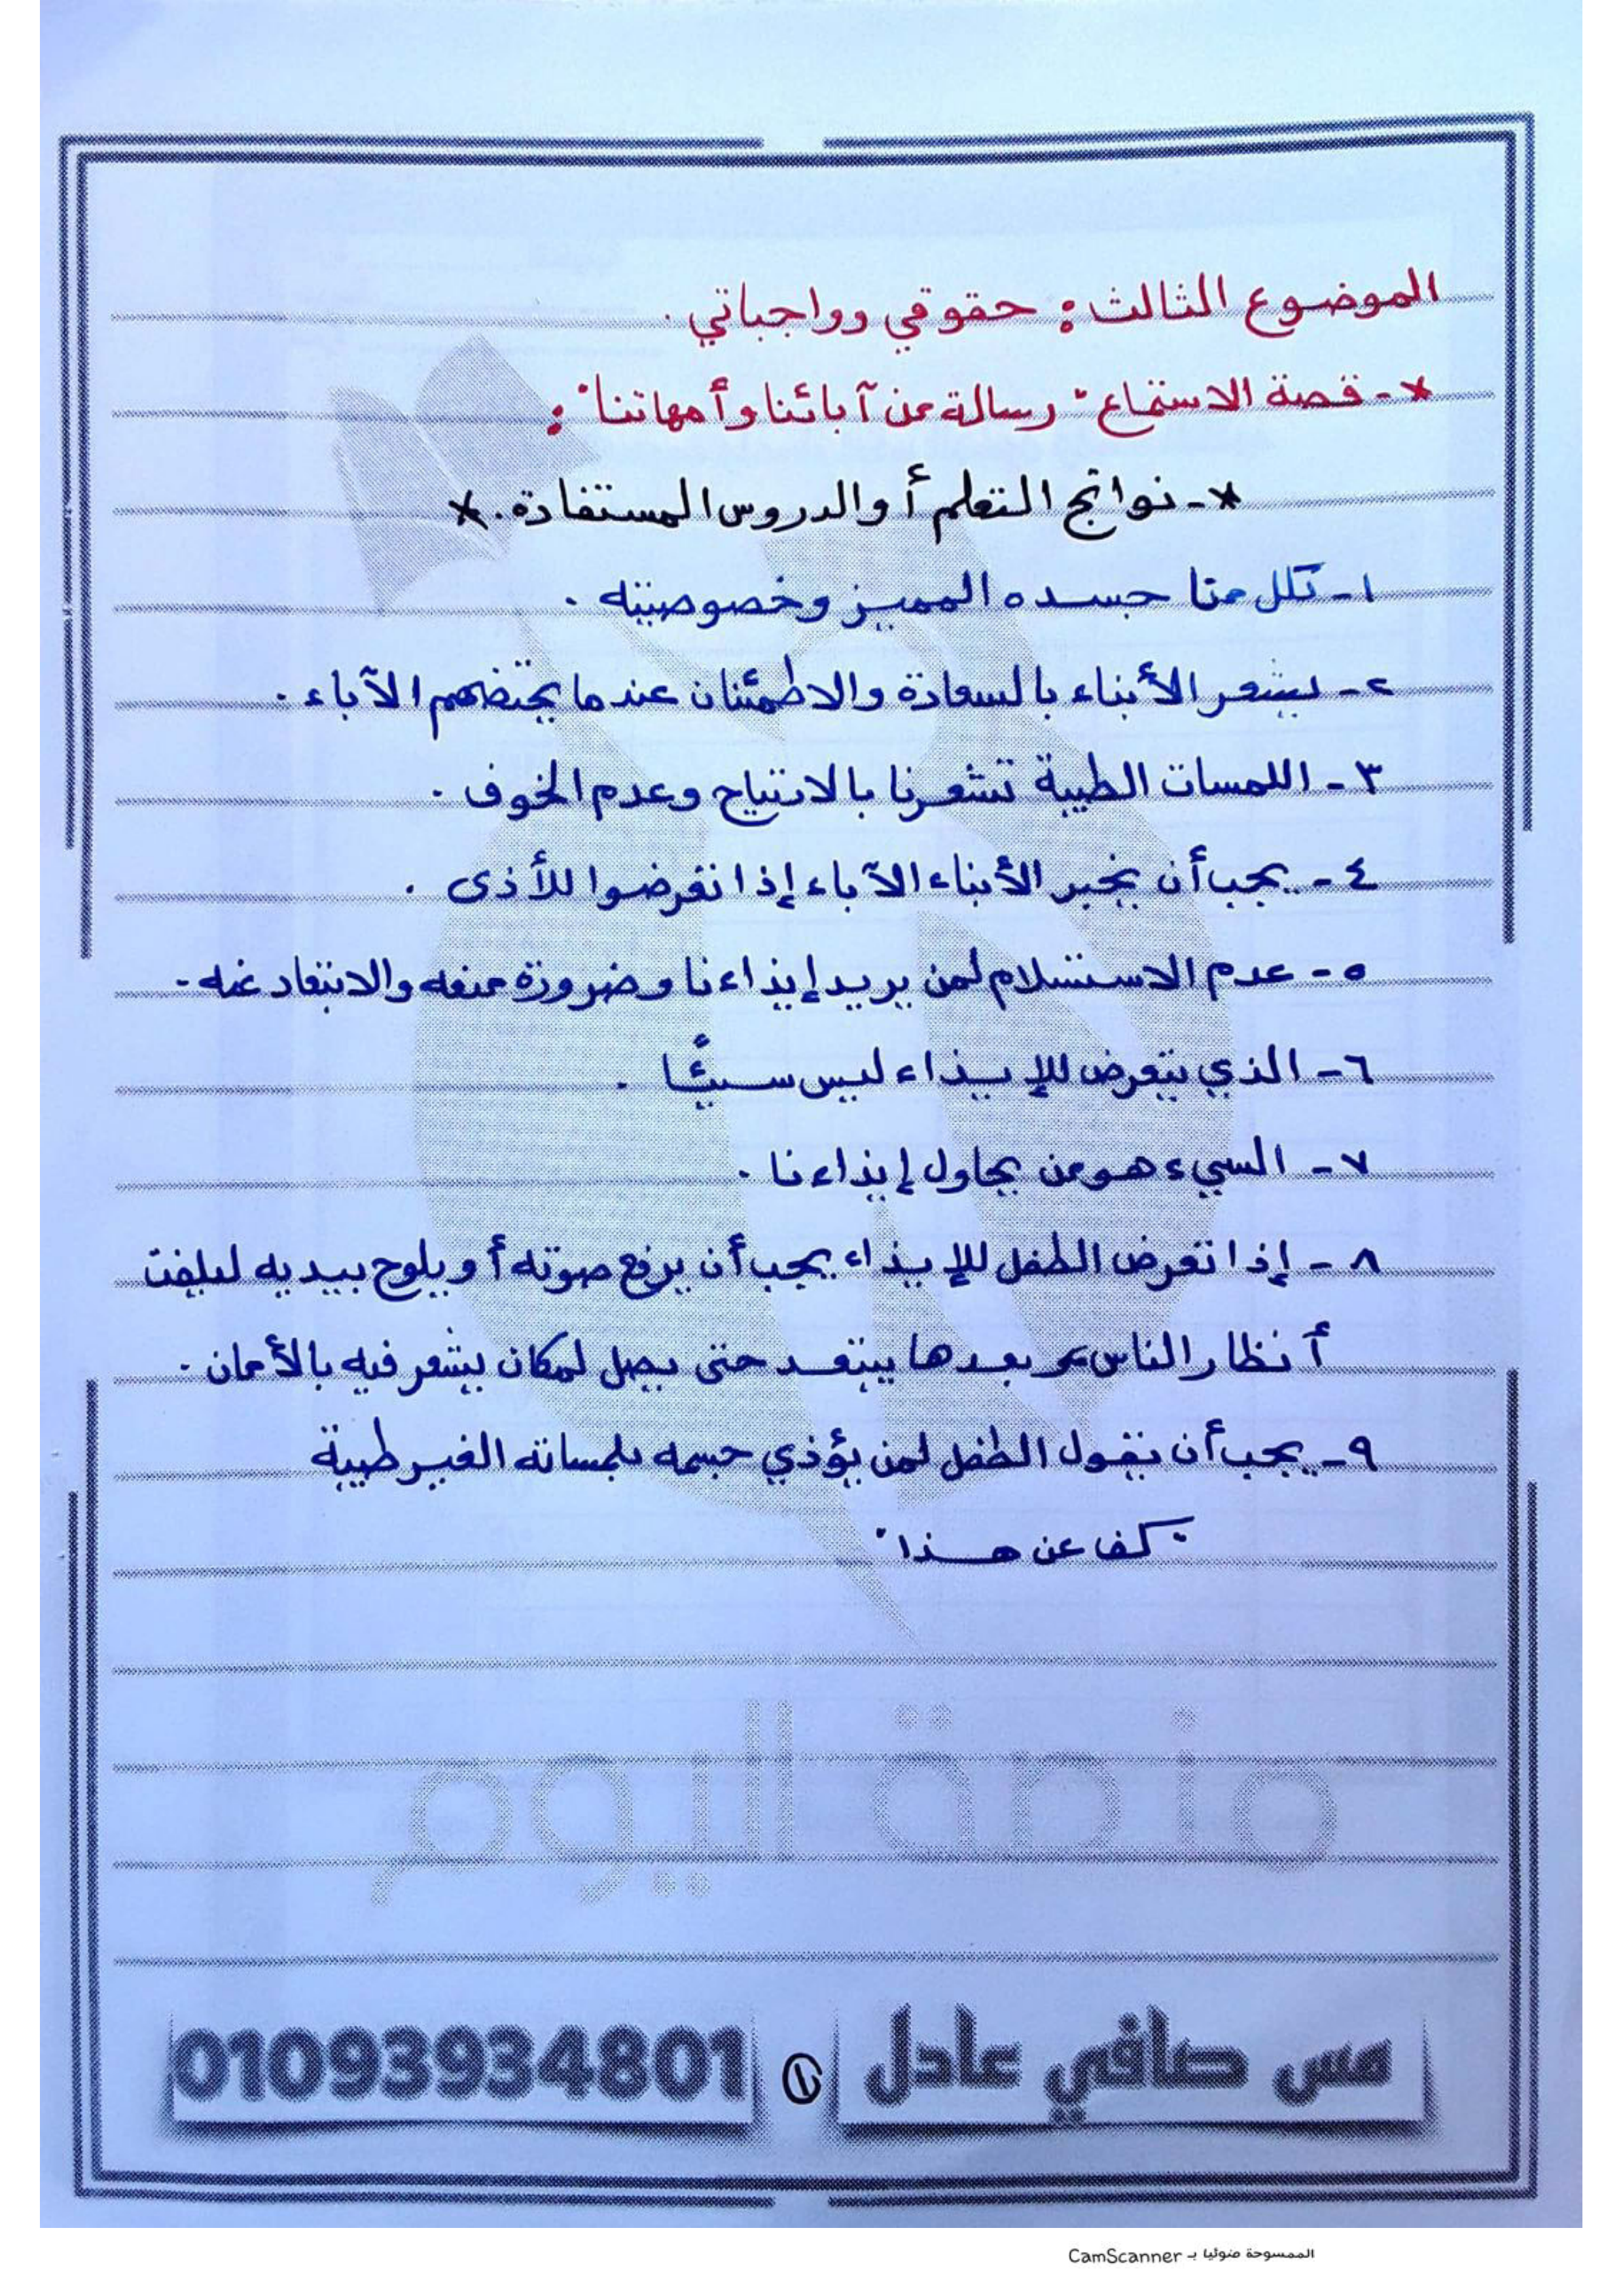 الموضوع الثالث : حقوقي وواجباتي .
* - قصة الاستماع " رسالة من آبائنا وأمهاتنا " :
* - نواتج التعلم أو الدروس المستفادة . *
١ - لكل منا جسده المميز وخصوصيته .
٢ - يشعر الأبناء بالسعادة والاطمئنان عندما يحتضنهم الآباء .
٣ - اللمسات الطيبة تشعرنا بالارتياح وعدم الخوف .
٤ - يجب أن يخبر الأبناء الآباء إذا تعرضوا للأذى .
٥ - عدم الاستسلام لمن يريد إيذاءنا وضرورة منعه والابتعاد عنه .
٦ - الذي يتعرض للإيذاء ليس سيئًا .
٧ - السيء هو من يحاول إيذاءنا .
٨ - إذا تعرض الطفل للإيذاء يجب أن يرفع صوته أو يلوح بيديه ليلفت
أنظار الناس بعدها يبتعد حتى يصل لمكان يشعر فيه بالأمان .
٩ - يجب أن يقول الطفل لمن يؤذي جسمه بلمساته الغير طيبة
" كف عن هذا "
منصة اليوم
مس صافي عادل ١ 01093934801
الممسوحة ضوئيا بـ CamScanner